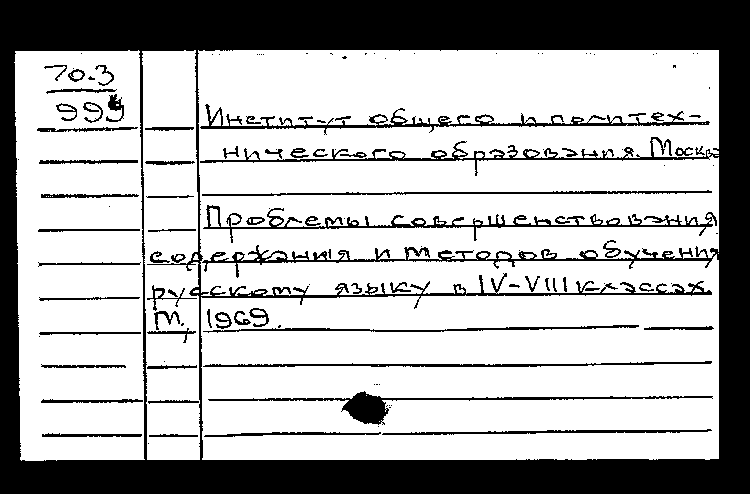 70.3
999
Институт общего и политех-
нического образования. Москва
Проблемы совершенствования
содержания и методов обучения
русскому языку в IV-VIII классах.
М., 1969.